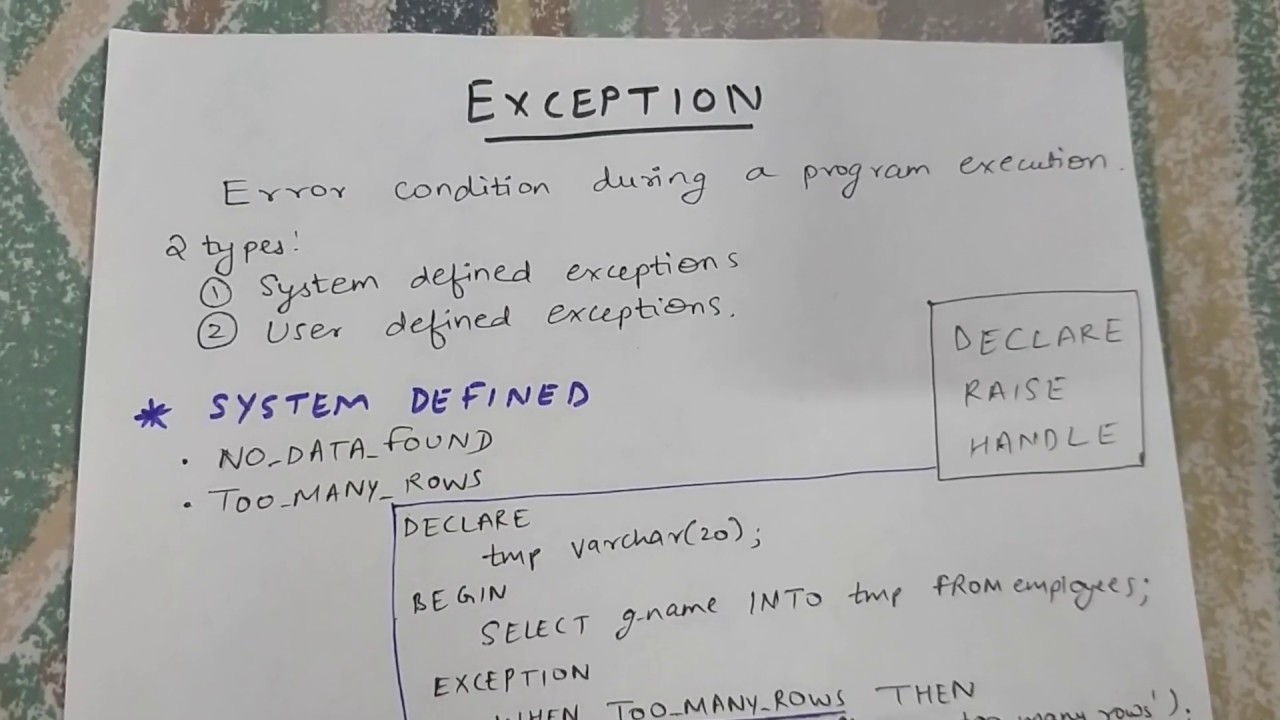 EXCEPTION
Error condition during a program execution.
2 types:
① System defined exceptions
② User defined exceptions.
DECLARE
RAISE
HANDLE
* SYSTEM DEFINED
• NO_DATA_FOUND
• TOO_MANY_ROWS
DECLARE
tmp varchar(20);
BEGIN
SELECT g-name INTO tmp FROM employees;
EXCEPTION
WHEN TOO_MANY_ROWS THEN
too many rows').